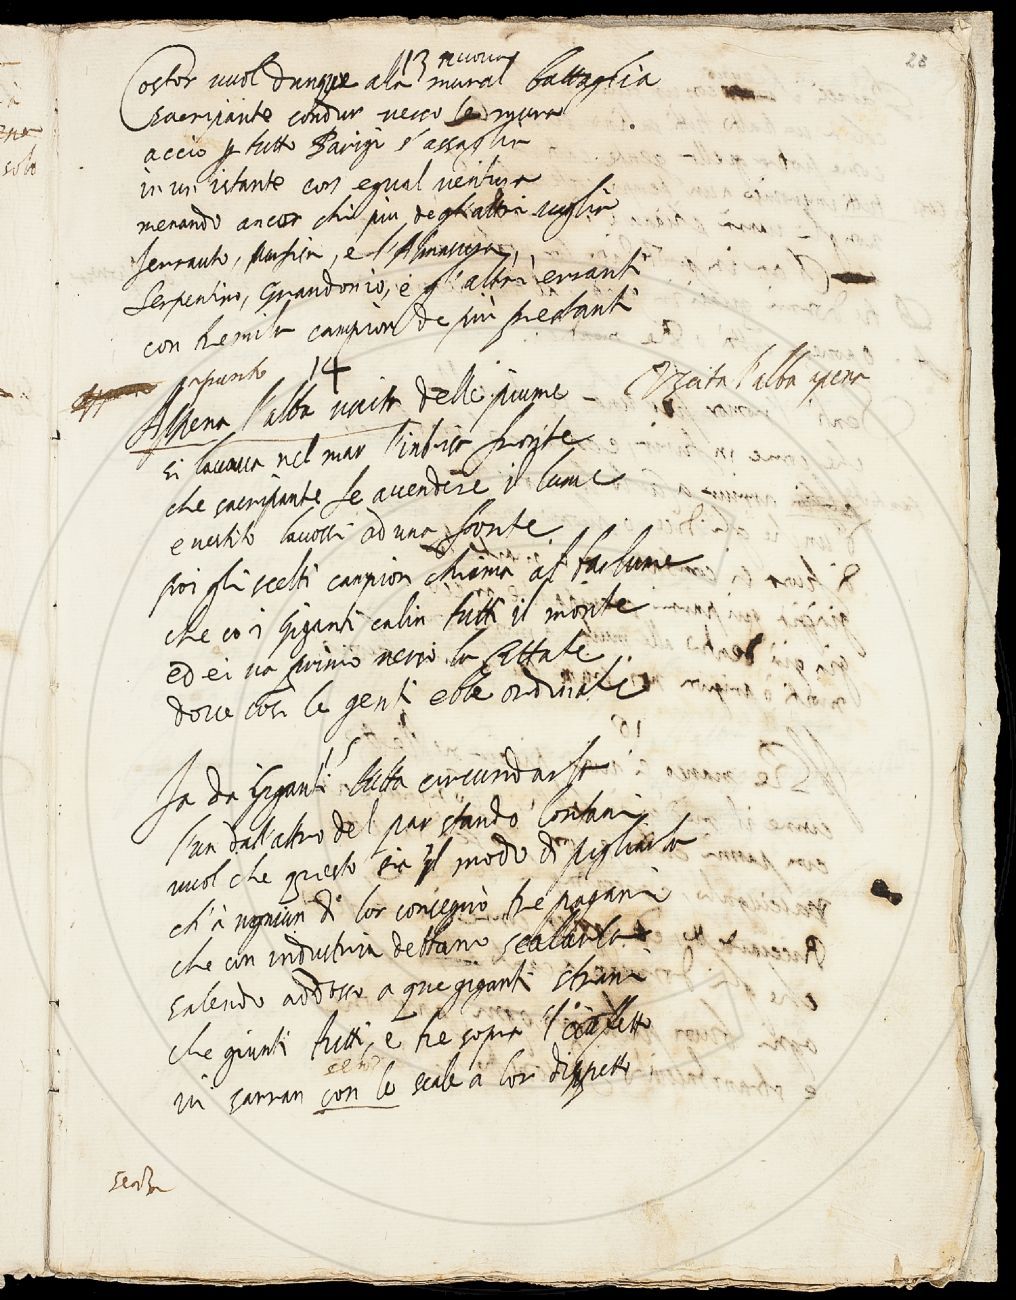 23
13 nuova
Costor vuol dunque alla mural battaglia
sacripante condur verso le mura
acciò p tutto Parigi s'assaglia
in un istante con egual ventura
menando ancor chi più degl'altri vaglia
ferrauto, e l'Almansura,
Serpentino, Grandonio, e gl'altri erranti
con tremila campion de più prestanti
14
apunto
Uscita l'alba apena
Appena l'alba uscita delle piume
si lavava nel mar l'imbrica fronte
che sacripante fe accendere il lume
e vestito lavossi ad una fonte
poi gli scelti campion chiama al barlume
che co i Giganti calin tutti il monte
ed ei va primo verso la Cittate
dove così le genti ebbe ordinate
15
Fa da Giganti tutta circundarla
l'un dall'altro del par stando lontani
vuol che questo sia il modo di pigliarla
ch'a ugniun di lor consegnò tre pagani
che con industria debbano scalarla
salendo addosso a que giganti strani
che giunti tutti e tre sopra l'
senza
ivi sarran con le scale a lor dispetto
senza